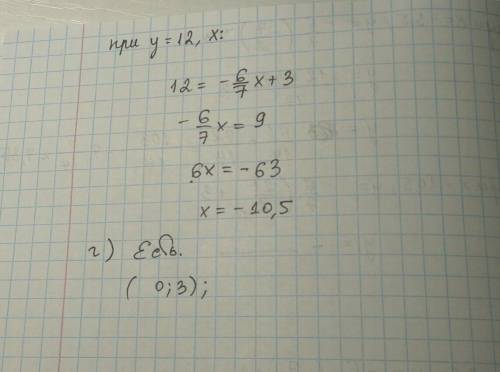 при y = 12, x:
12 = - 6/7 x + 3
- 6/7 x = 9
6x = - 63
x = - 10,5
г) Есть.
( 0; 3);